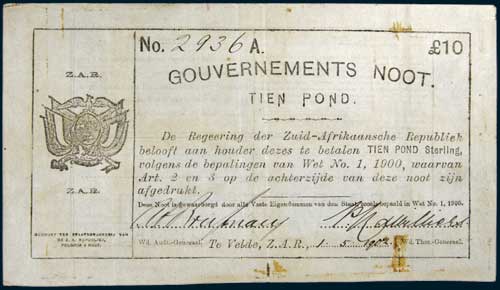 No. 2936 A. £10
GOUVERNEMENTS NOOT.
TIEN POND.
Z.A.R.
De Regeering der Zuid-Afrikaansche Republiek
belooft aan houder dezes te betalen TIEN POND Sterling,
volgens de bepalingen van Wet No. 1, 1900, waarvan
Art. 2 en 3 op de achterzijde van deze noot zijn
afgedrukt.
Z.A.R.
Deze Noot is gewaarborgd door alle Vaste Eigendommen van den Staat, zooals bepaald in Wet No. 1, 1900.
Wd. Audt.-Generaal. Te Velde, Z.A.R., 1 5 1902. Wd. Thes.-Generaal.